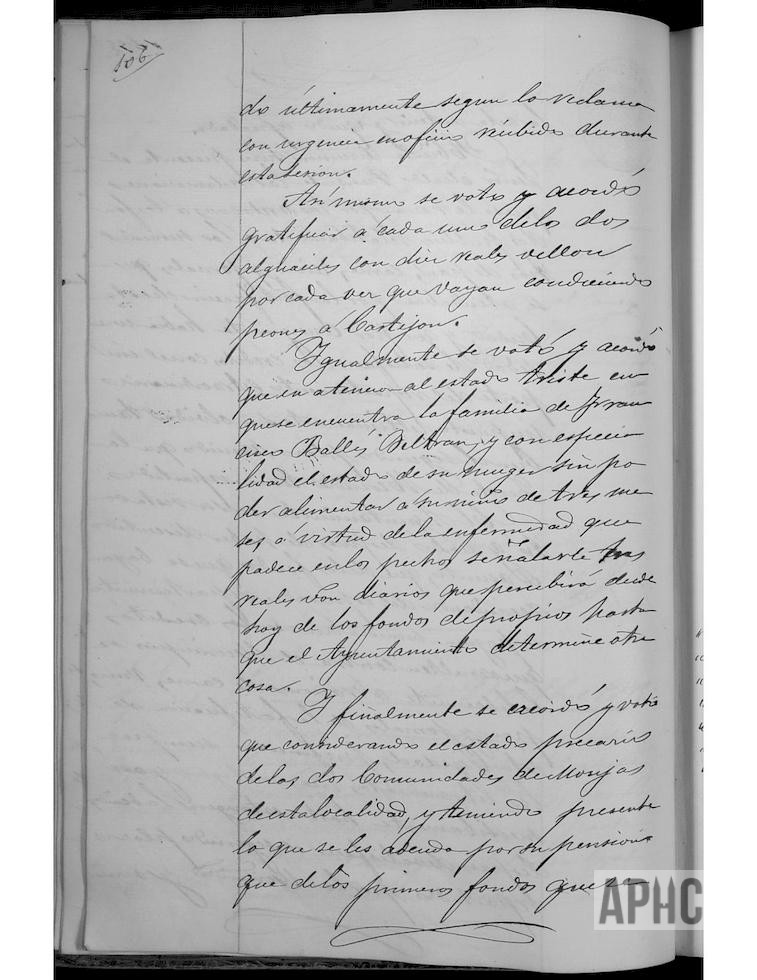 106
do últimamente segun lo reclama
con urgencia en oficio recibido durante
esta sesion.
Asi mismo se votó y acordó
gratificar á cada uno de los dos
alguaciles con diez reales vellon
por cada vez que vayan conduciendo
peones á Castejon.
Igualmente se votó y acordó
que en atencion al estado triste en
que se encuentra la familia de Fran
cisco Ballés Beltran, y con especia
lidad el estado de su muger sin po
der alimentar a su niño de tres me
ses, á virtud de la enfermedad que
padece en los pechos señalarle tres
reales von diarios que percibirá desde
hoy de los fondos de propios hasta
que el Ayuntamiento determine otra
cosa.
Y finalmente se acordó y votó
que considerando el estado precario
de las dos Comunidades de Monjas
de esta localidad, y teniendo presente
lo que se les adeuda por su pension
que de los primeros fondos que se
APHC